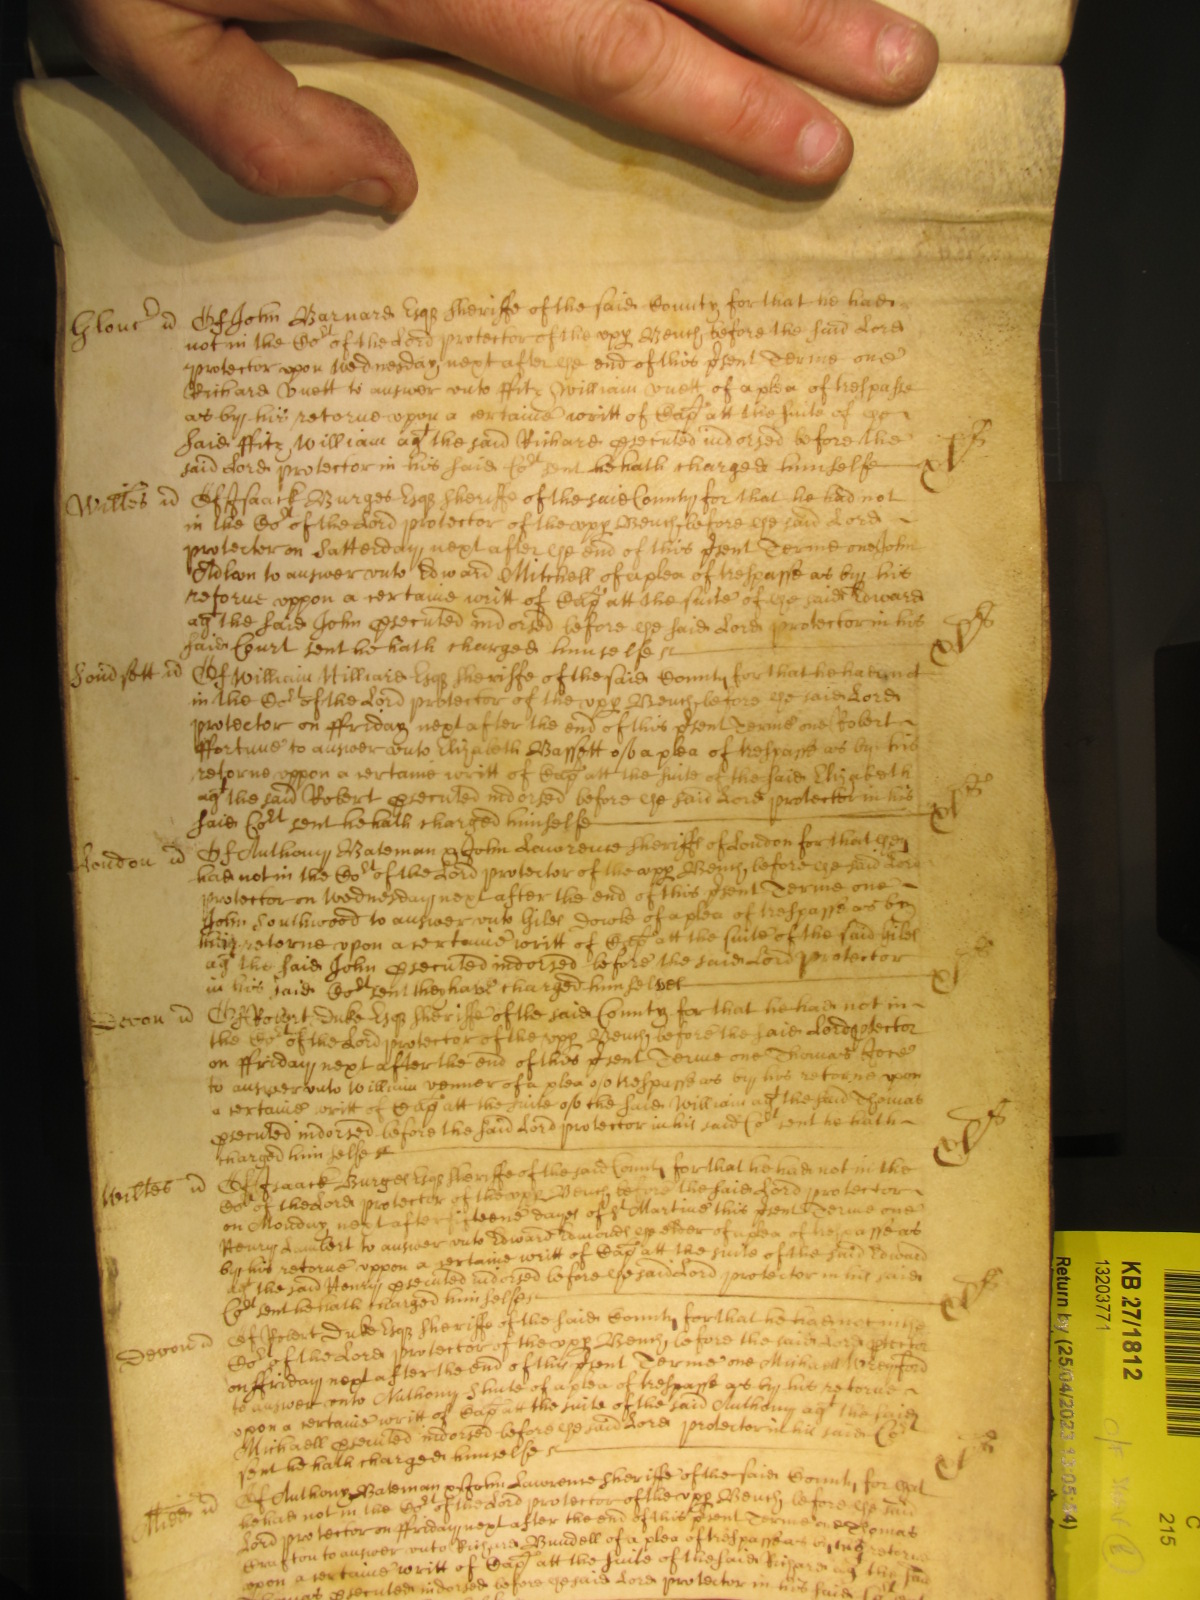 Glouc̄ ss Of John Barnard Esqr Sheriffe of the said County for that he had
not in the Cort of the Lord protector of the vpp Bench before the said Lord
protector vpon Wednesday next after ye end of this p̄sent Terme one
Richard Vnett to answer vnto ffitz William vnett of a plea of trespasse
as by his retorne vpon a certaine writt of Cap̄ att the suite of ye
said ffitz William agt the said Richard executed indorsed before the
said Lord protector in his said Cort sent he hath charged himselfe
Wiltes ss Of Isaack Burges Esqr Sheriffe of the said County for that he had not
in the Cort of the Lord protector of the vpp Bench before ye said Lord
protector on Satterday next after ye end of this p̄sent Terme one John
to answer vnto Edward Mitchell of a plea of trespasse as by his
retorne vppon a certaine writt of Cap̄ att the suite of ye said Edward
agt the said John executed indorsed before ye said Lord protector in his
said Court sent he hath charged himselfe
ss Of William Hilliard Esqr Sheriffe of the said County for that he had not
in the Cort of the Lord protector of the vpp Bench before ye said Lord
protector on ffriday next after the end of this p̄sent Terme one Robert
ffortune to answer vnto Elizabeth Bassett of a plea of trespasse as by his
retorne vppon a certaine writt of Cap̄ att the suite of the said Elizabeth
agt the said Robert executed indorsed before ye said Lord protector in his
said Cort sent he hath charged himselfe
London ss Of Anthony Bateman & John Lawrence Sheriffs of London for that they
had not in the Cort of the Lord protector of the vpp Bench before ye said Lord
protector on Wednesday next after the end of this p̄sent Terme one
John Southwood to answer vnto Giles of a plea of trespasse as by
retorne vpon a certaine writt of Cap̄ att the suite of the said Giles
agt the said John executed indorsed before the said Lord protector
in his said Cort sent they have charged himselves
Devon ss Of Robert Duke Esqr Sheriffe of the said County for that he had not in
the Cort of the Lord protector of the vpp Bench before the said Lord protector
on ffriday next after the end of this p̄sent Terme one Thomas
to answer vnto William venner of a plea of trespasse as by his retorne vpon
a certaine writt of Cap̄ att the suite of the said William agt the said Thomas
executed indorsed before the said Lord protector in his said Cort sent he hath
charged himselfe
Wiltes ss Of Isaack Burges Esqr Sheriffe of the said County for that he had not in the
Cort of the Lord protector of the vpp Bench before the said Lord protector
on Monday next after fifteene dayes of St Martine this p̄sent Terme one
Henry Lambert to answer vnto Edward Edmonds ye elder of a plea of trespasse as
by his retorne vppon a certaine writt of Cap̄ att the suite of the said Edward
agt the said Henry executed indorsed before ye said Lord protector in his said
Cort sent he hath charged himselfe
Devon ss Of Robert Duke Esqr Sheriffe of the said County for that he had not in the
Cort of the Lord protector of the vpp Bench before the said Lord protector
on ffriday next after the end of this p̄sent Terme one Michael
to answer vnto Anthony Shute of a plea of trespasse as by his retorne
vpon a certaine writt of Cap̄ att the suite of the said Anthony agt the said
Michaell executed indorsed before ye said Lord protector in his said Cort
sent he hath charged himselfe
Midd ss Of Anthony Bateman & John Lawrence Sheriffe of the said County for that
he had not in the Cort of the Lord protector of the vpp Bench before ye said
Lord protector on ffriday next after the end of this p̄sent Terme one Thomas
to answer vnto Richard Bundell of a plea of trespasse as by his retorne
vpon a certaine writt of Cap̄ att the suite of the said Richard agt the said
Thomas executed indorsed before ye said Lord protector in his said
KB 27/1812
13203771
Return by (25/04/2023
C
215